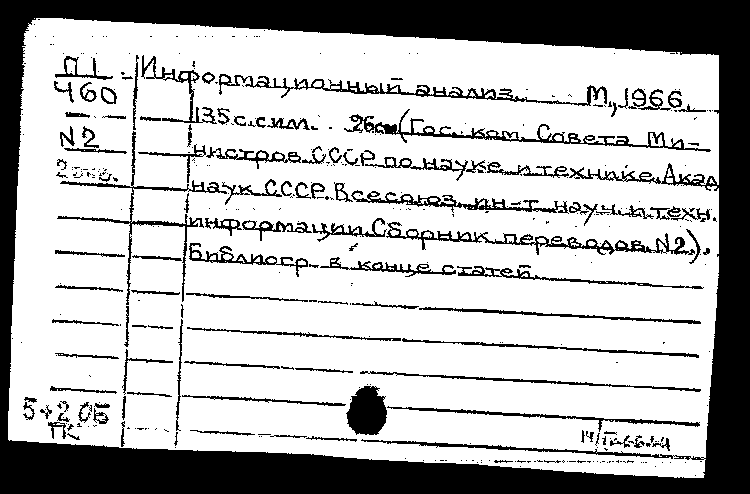 П1
460
N2
2 экз.
Информационный анализ. М, 1966.
135 с. с ил. 26см (Гос. ком. Совета Ми-
нистров СССР по науке и технике. Акад
наук СССР. Всесоюз. ин-т науч. и техн.
информации. Сборник переводов. N2).
Библиогр. в конце статей.
5+2 ОБ
ПК